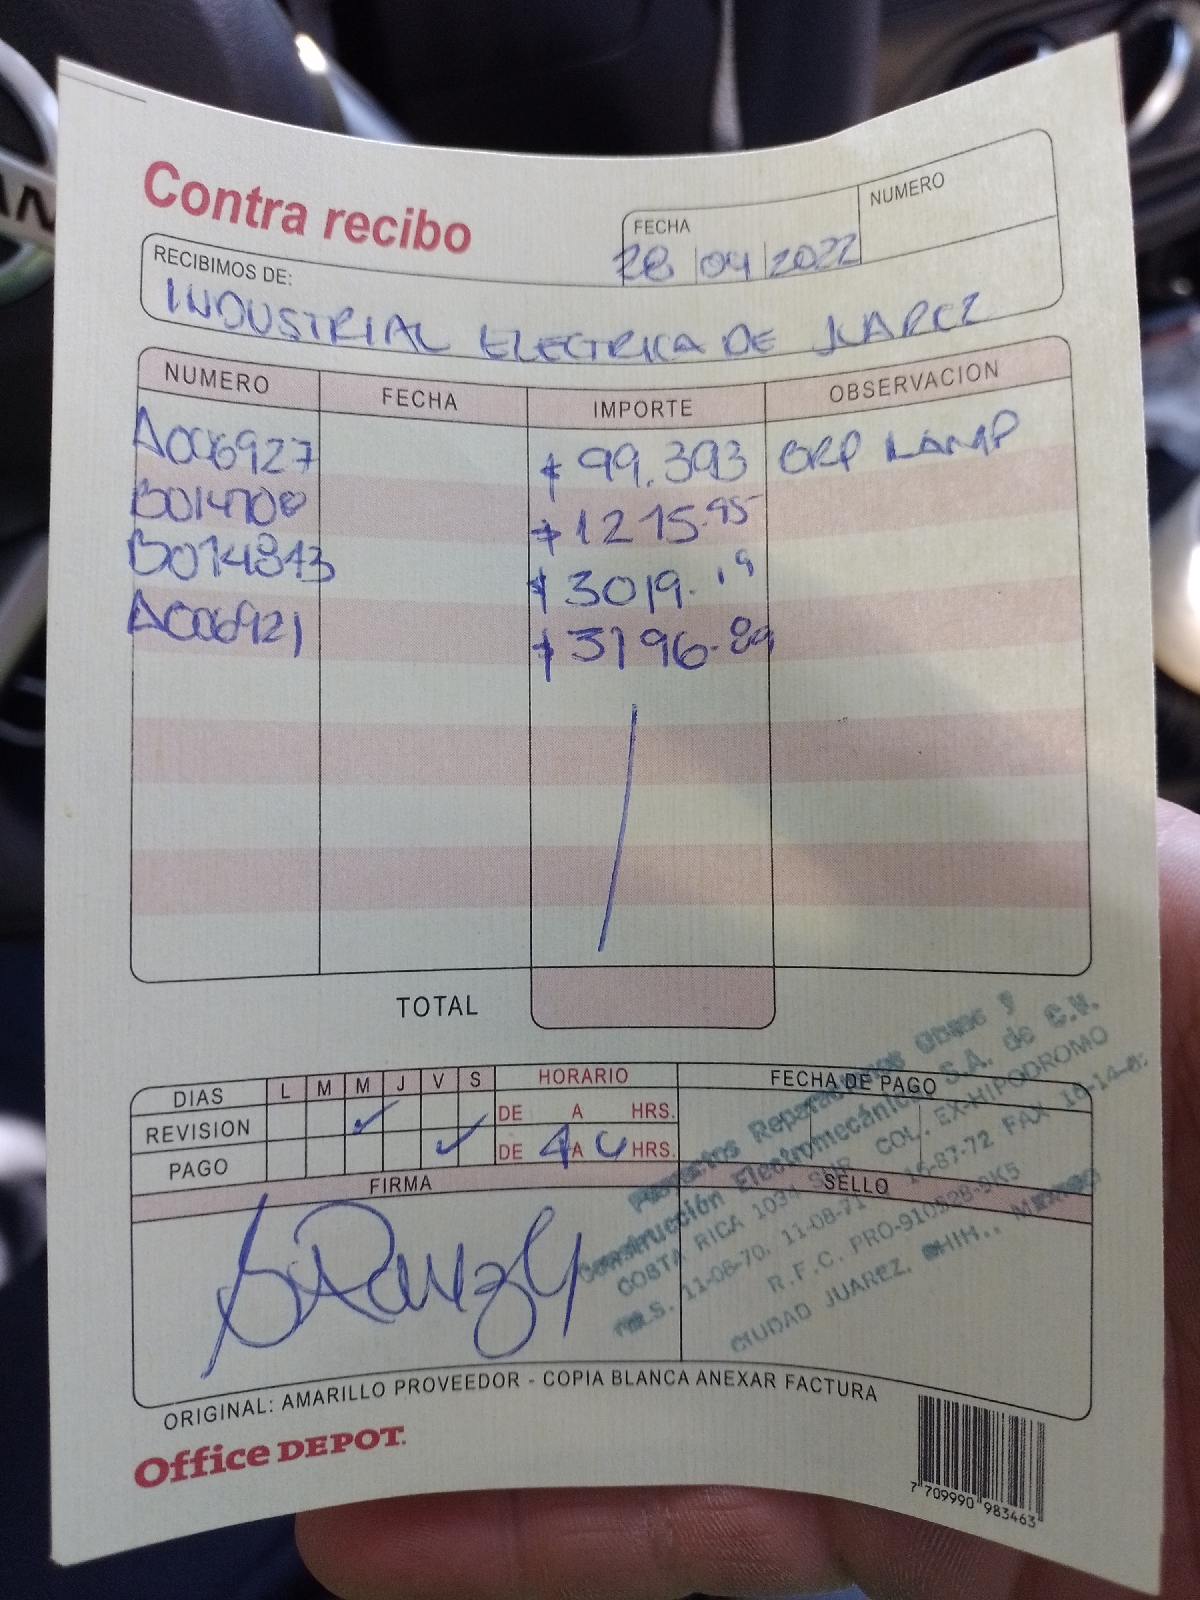 Contra recibo
FECHA
NUMERO
28 04 2022
RECIBIMOS DE:
INDUSTRIAL ELECTRICA DE JUAREZ
NUMERO FECHA IMPORTE OBSERVACION
A006927 $ 99.393
B014708 $ 1275.95
B014843 $ 3019.19
A006921 $ 3196.89
TOTAL
DIAS L M M J V S HORARIO FECHA DE PAGO
REVISION ✓ DE A HRS.
PAGO ✓ DE 4 A 6 HRS.
FIRMA SELLO
Construcción Electromecánica S.A. de C.V.
COSTA RICA 1034 SUR COL. EX-HIPODROMO
TELS. 11-08-70, FAX
R.F.C. PRO-910528-9K5
CIUDAD JUAREZ, CHIH., MEXICO
ORIGINAL: AMARILLO PROVEEDOR - COPIA BLANCA ANEXAR FACTURA
Office DEPOT.
7 709990 983463